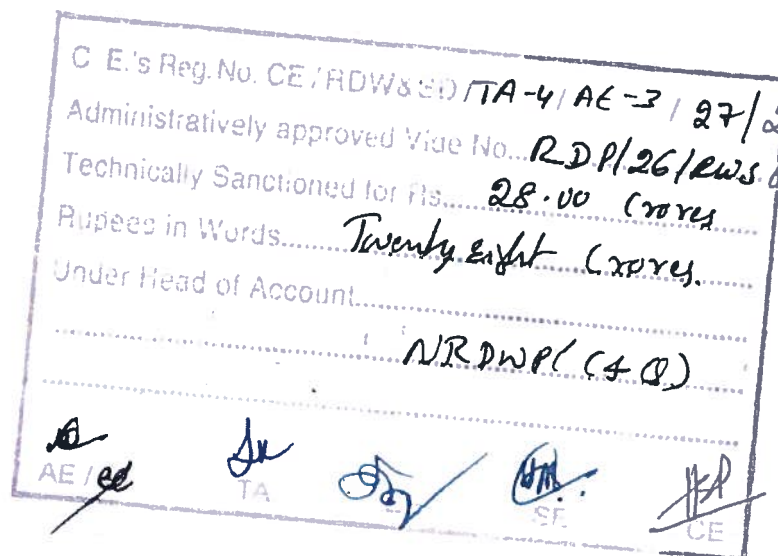 C E.'s Reg. No. CE / RDW&SD / TA-4 / AE-3 / 27/2
Administratively approved Vide No... RDP/26/RWS
Technically Sanctioned for Rs.... 28.00 Crores
Rupees in Words........ Twenty eight Crores.
Under Head of Account........
NRDWP (C & Q)
AE / ee TA SE CE